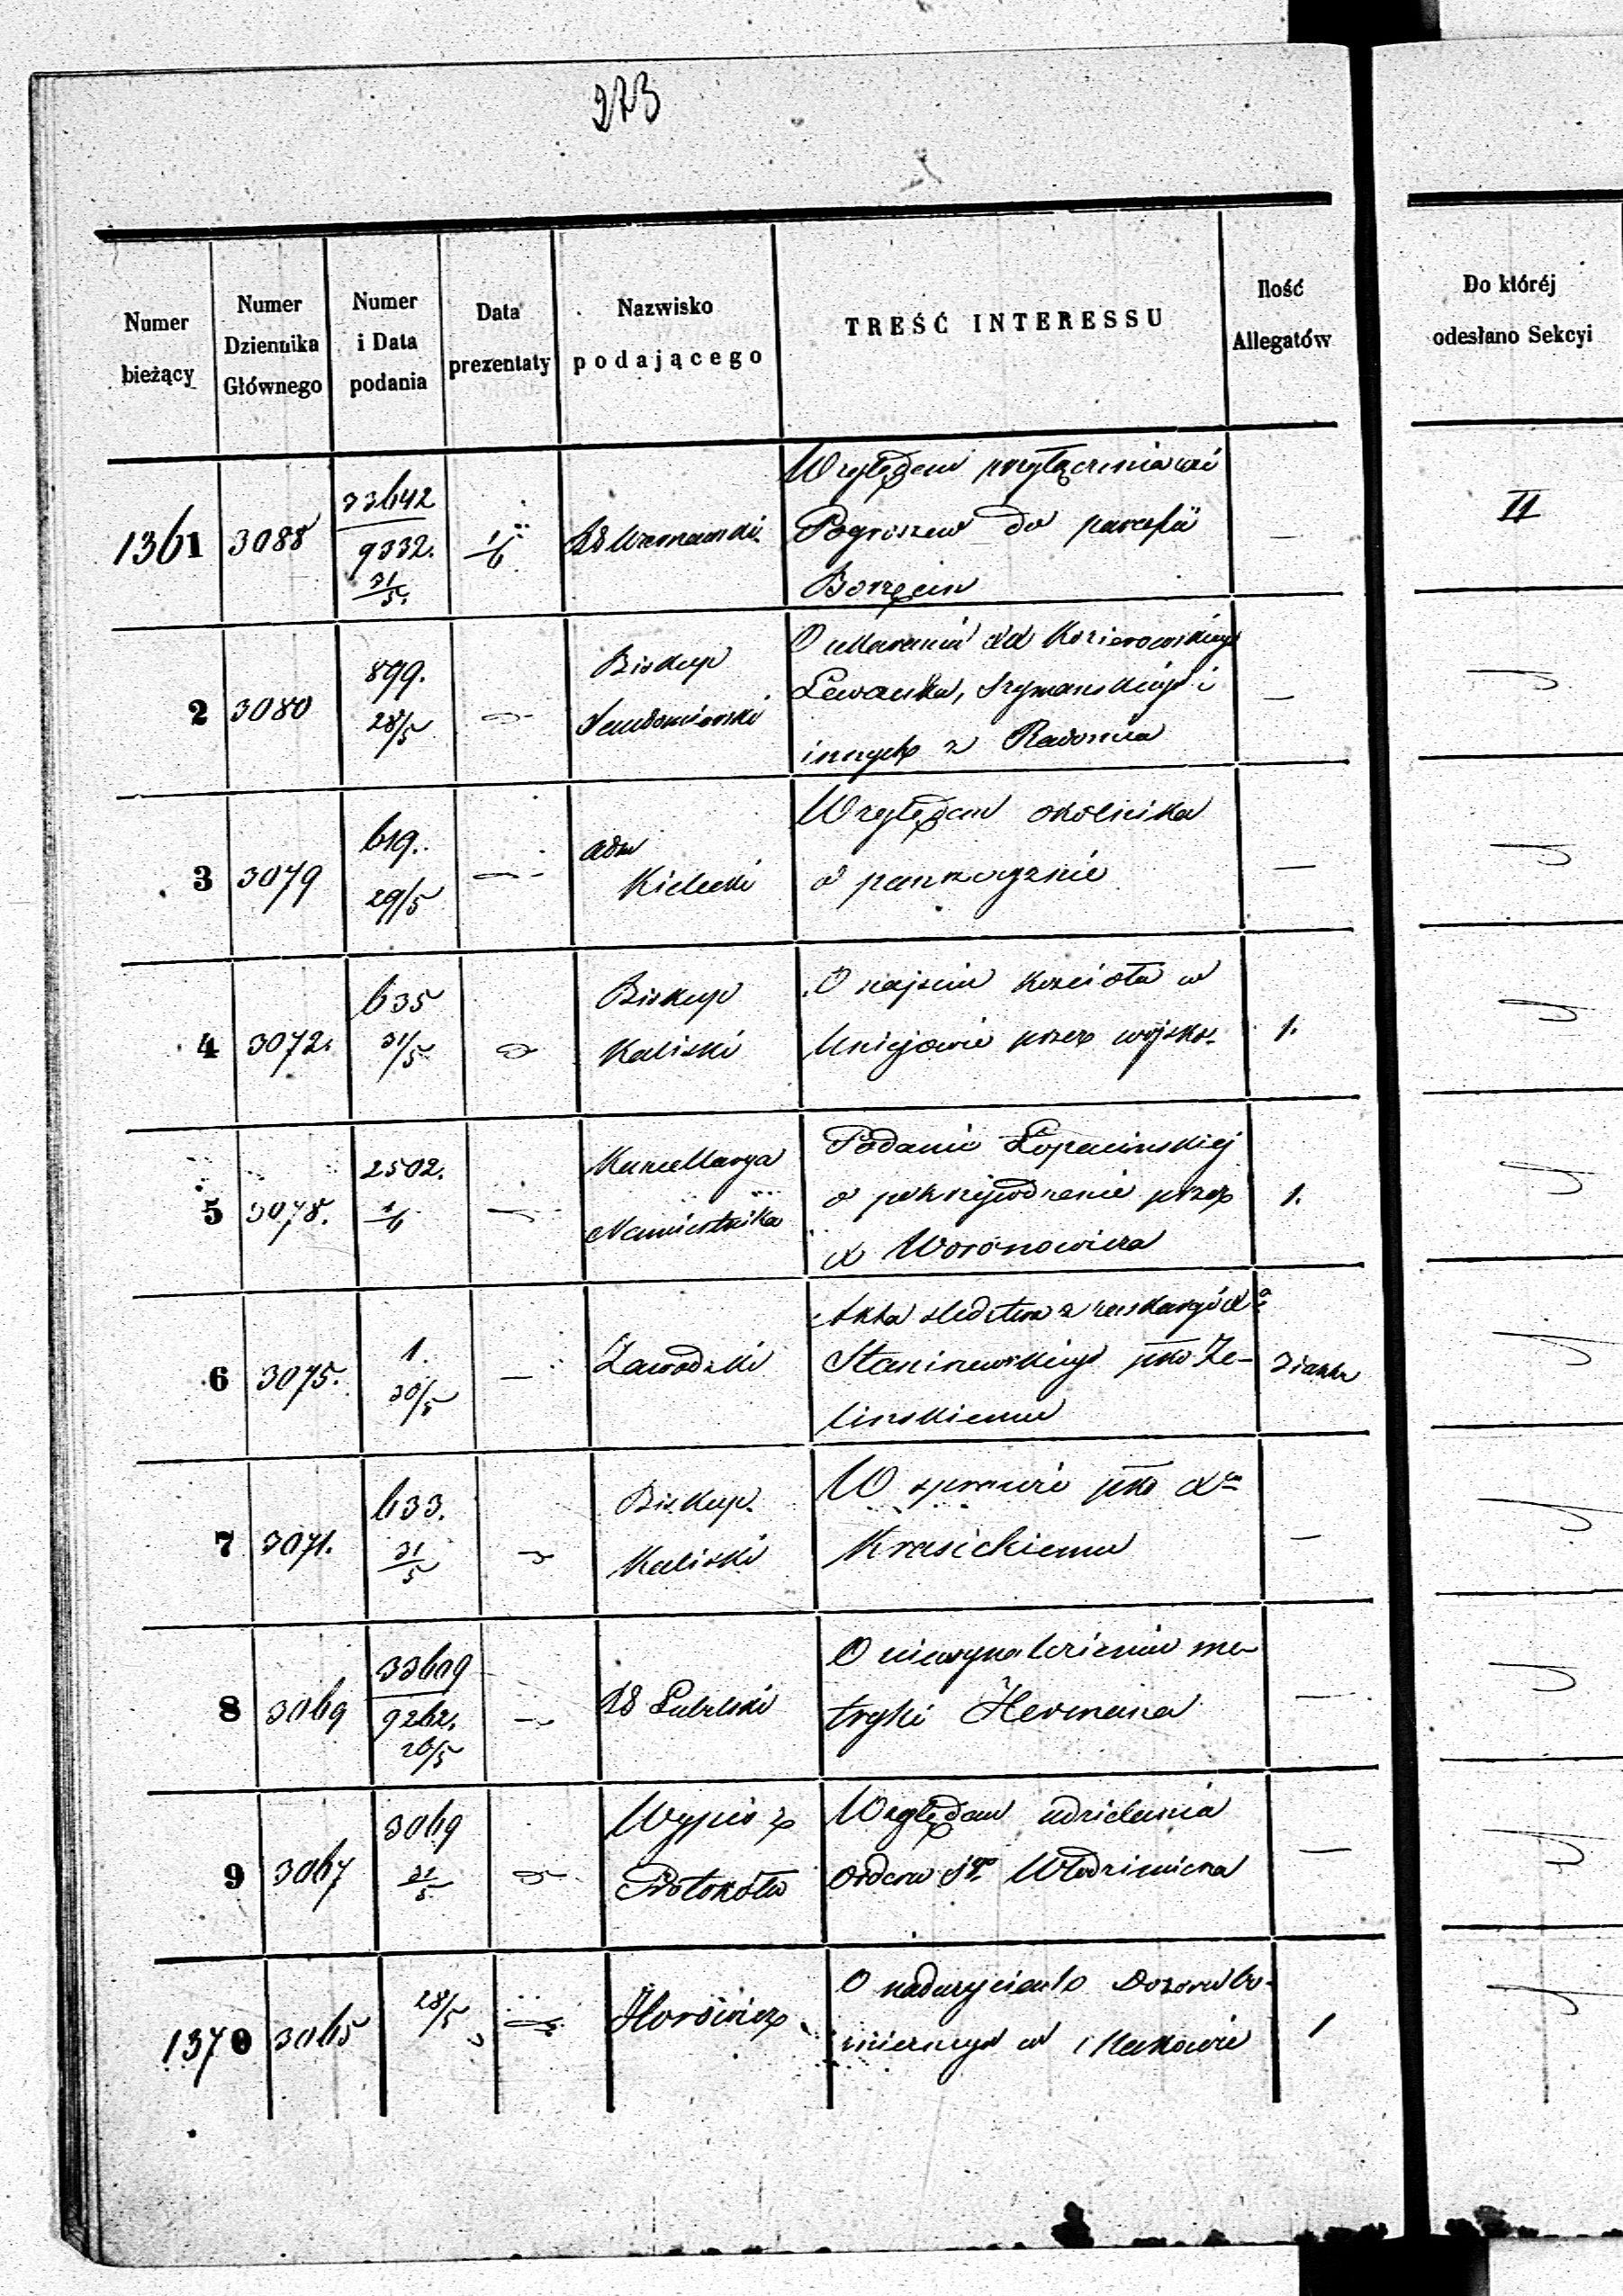 273
Numer bieżący
Numer Dziennika Głównego
Numer i Data podania
Data prezentaty
Nazwisko podającego
TREŚĆ INTERESSU
Ilość Allegatów
Do któréj odesłano Sekcyi
1361 3088 33642 9332. 31/5. 1/6 Względem przyłączenia wsi
Pogroszew do parafii —
Borzęcin
II
2 3080 899. 28/5 Biskup Sandomierski
O ukaraniu Xd Kozierowskiego
Lewańska, Szymanskiego i —
innych z Radomia
3 3079 619. 29/5 — Adm Kielecki
Względem okólnika
o pańszczyznie —
4 3072. 635 31/5 Biskup Kaliski
O najściu Kościoła w
Uniejowie przez wojsko. 1.
5 3078. 2502. 1/6 — Kancellarya Namiestnika
Podanie Łopacinskiej
o pokrzywdzenie przez 1.
X Woronowicza
6 3075. 1. 30/5 — Zawadzki
Akta śledztwa z zaskargi X
Staniszewskiego pko Ze-
linskiemu
7 3071. 633. 31/5 Biskup. Kaliski
W sprawie pko Xu
Krasickiemu —
8 3069 33609 9262. 26/5 — Lubelski
O niewynalezieniu me-
tryki Hermana —
9 3067 3069 31/5 Wypis z Protokółu
Względem udzielenia
orderu Sgo Włodzimierza —
1370 3065 28/5 Horowicz
O nadużyciach Dozoru bo-
żniczego w Makowie 1